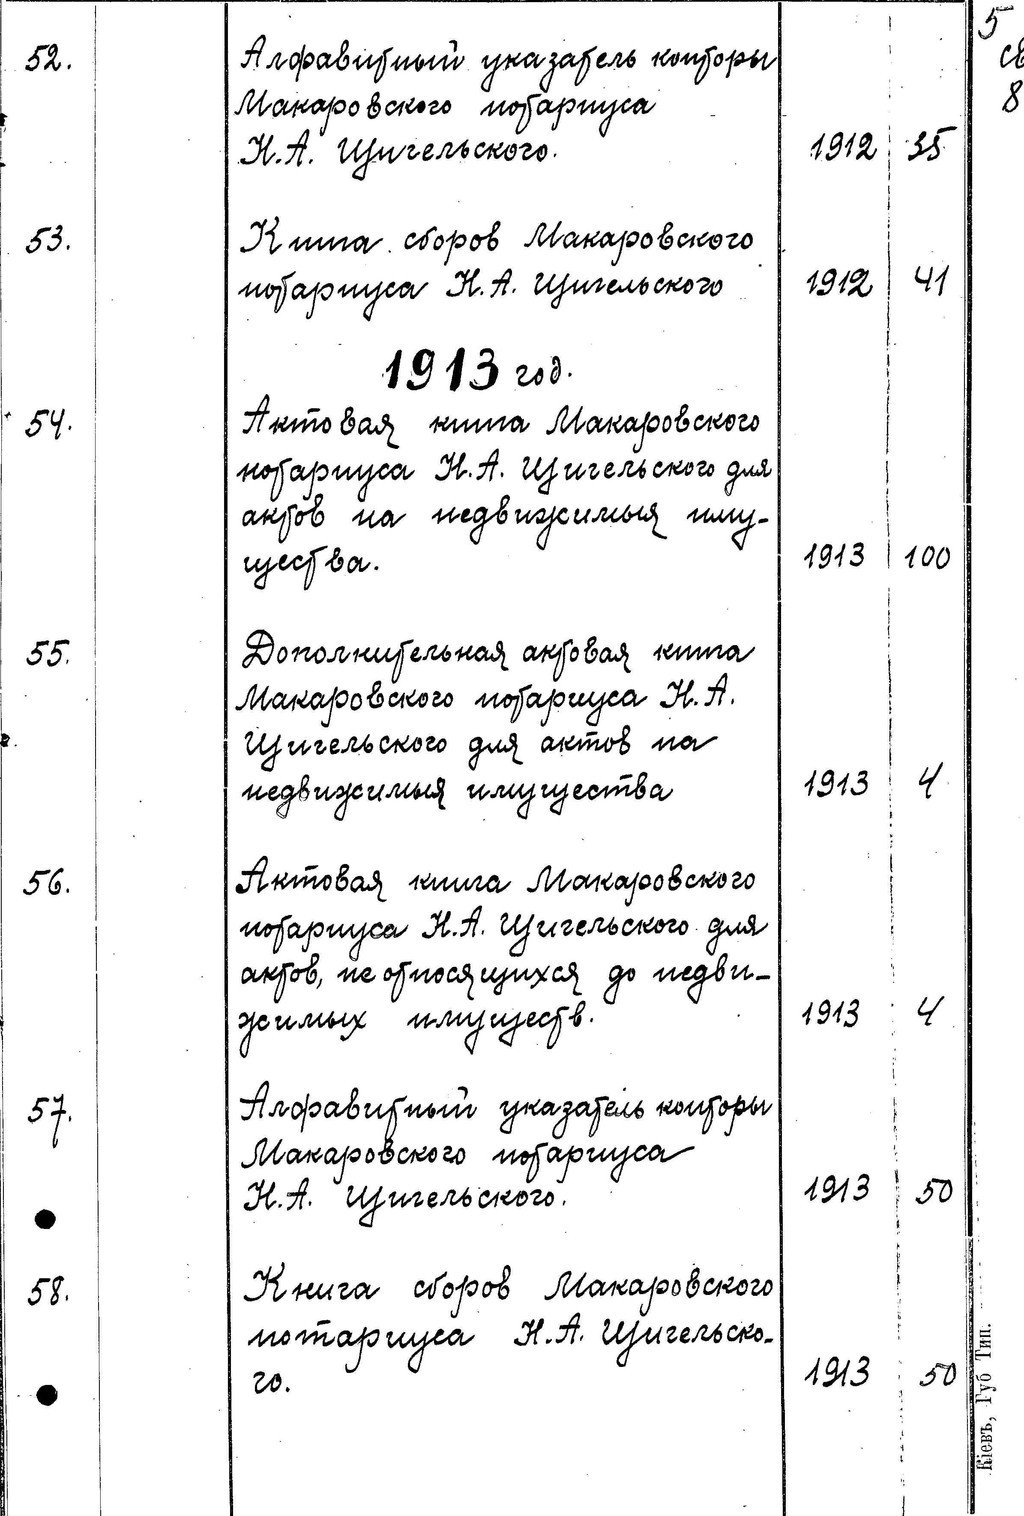 5
св
8
52.
Алфавитный указатель конторы
Макаровского нотариуса
Н.А. Щигельского.
1912 35
53.
Книга сборов Макаровского
нотариуса Н.А. Щигельского
1912 41
1913 год.
54.
Актовая книга Макаровского
нотариуса Н.А. Щигельского для
актов на недвижимыя иму-
щества.
1913 100
55.
Дополнительная актовая книга
Макаровского нотариуса Н.А.
Щигельского для актов на
недвижимыя имущества
1913 4
56.
Актовая книга Макаровского
нотариуса Н.А. Щигельского для
актов, не относящихся до недви-
жимых имуществ.
1913 4
57.
Алфавитный указатель конторы
Макаровского нотариуса
Н.А. Щигельского.
1913 50
58.
Книга сборов Макаровского
нотариуса Н.А. Щигельско-
го.
1913 50
Кіевъ, Губ Тип.